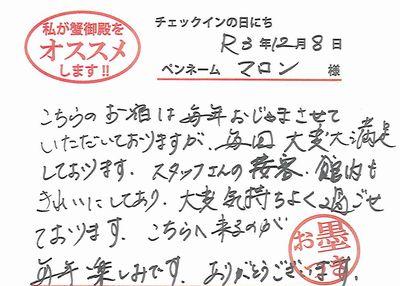 私が蟹御殿を
オススメ
します!!
チェックインの日にち
R3年12月8日
ペンネーム マロン 様
こちらのお宿は毎年おじゃまさせて
いただいておりますが、毎回大変大満足
しております. スタッフさんの接客. 館内も
きれいにしてあり. 大変気持ちよく過ごせ
ております. こちらへ来るのが
毎年楽しみです. ありがとうございます.
お墨